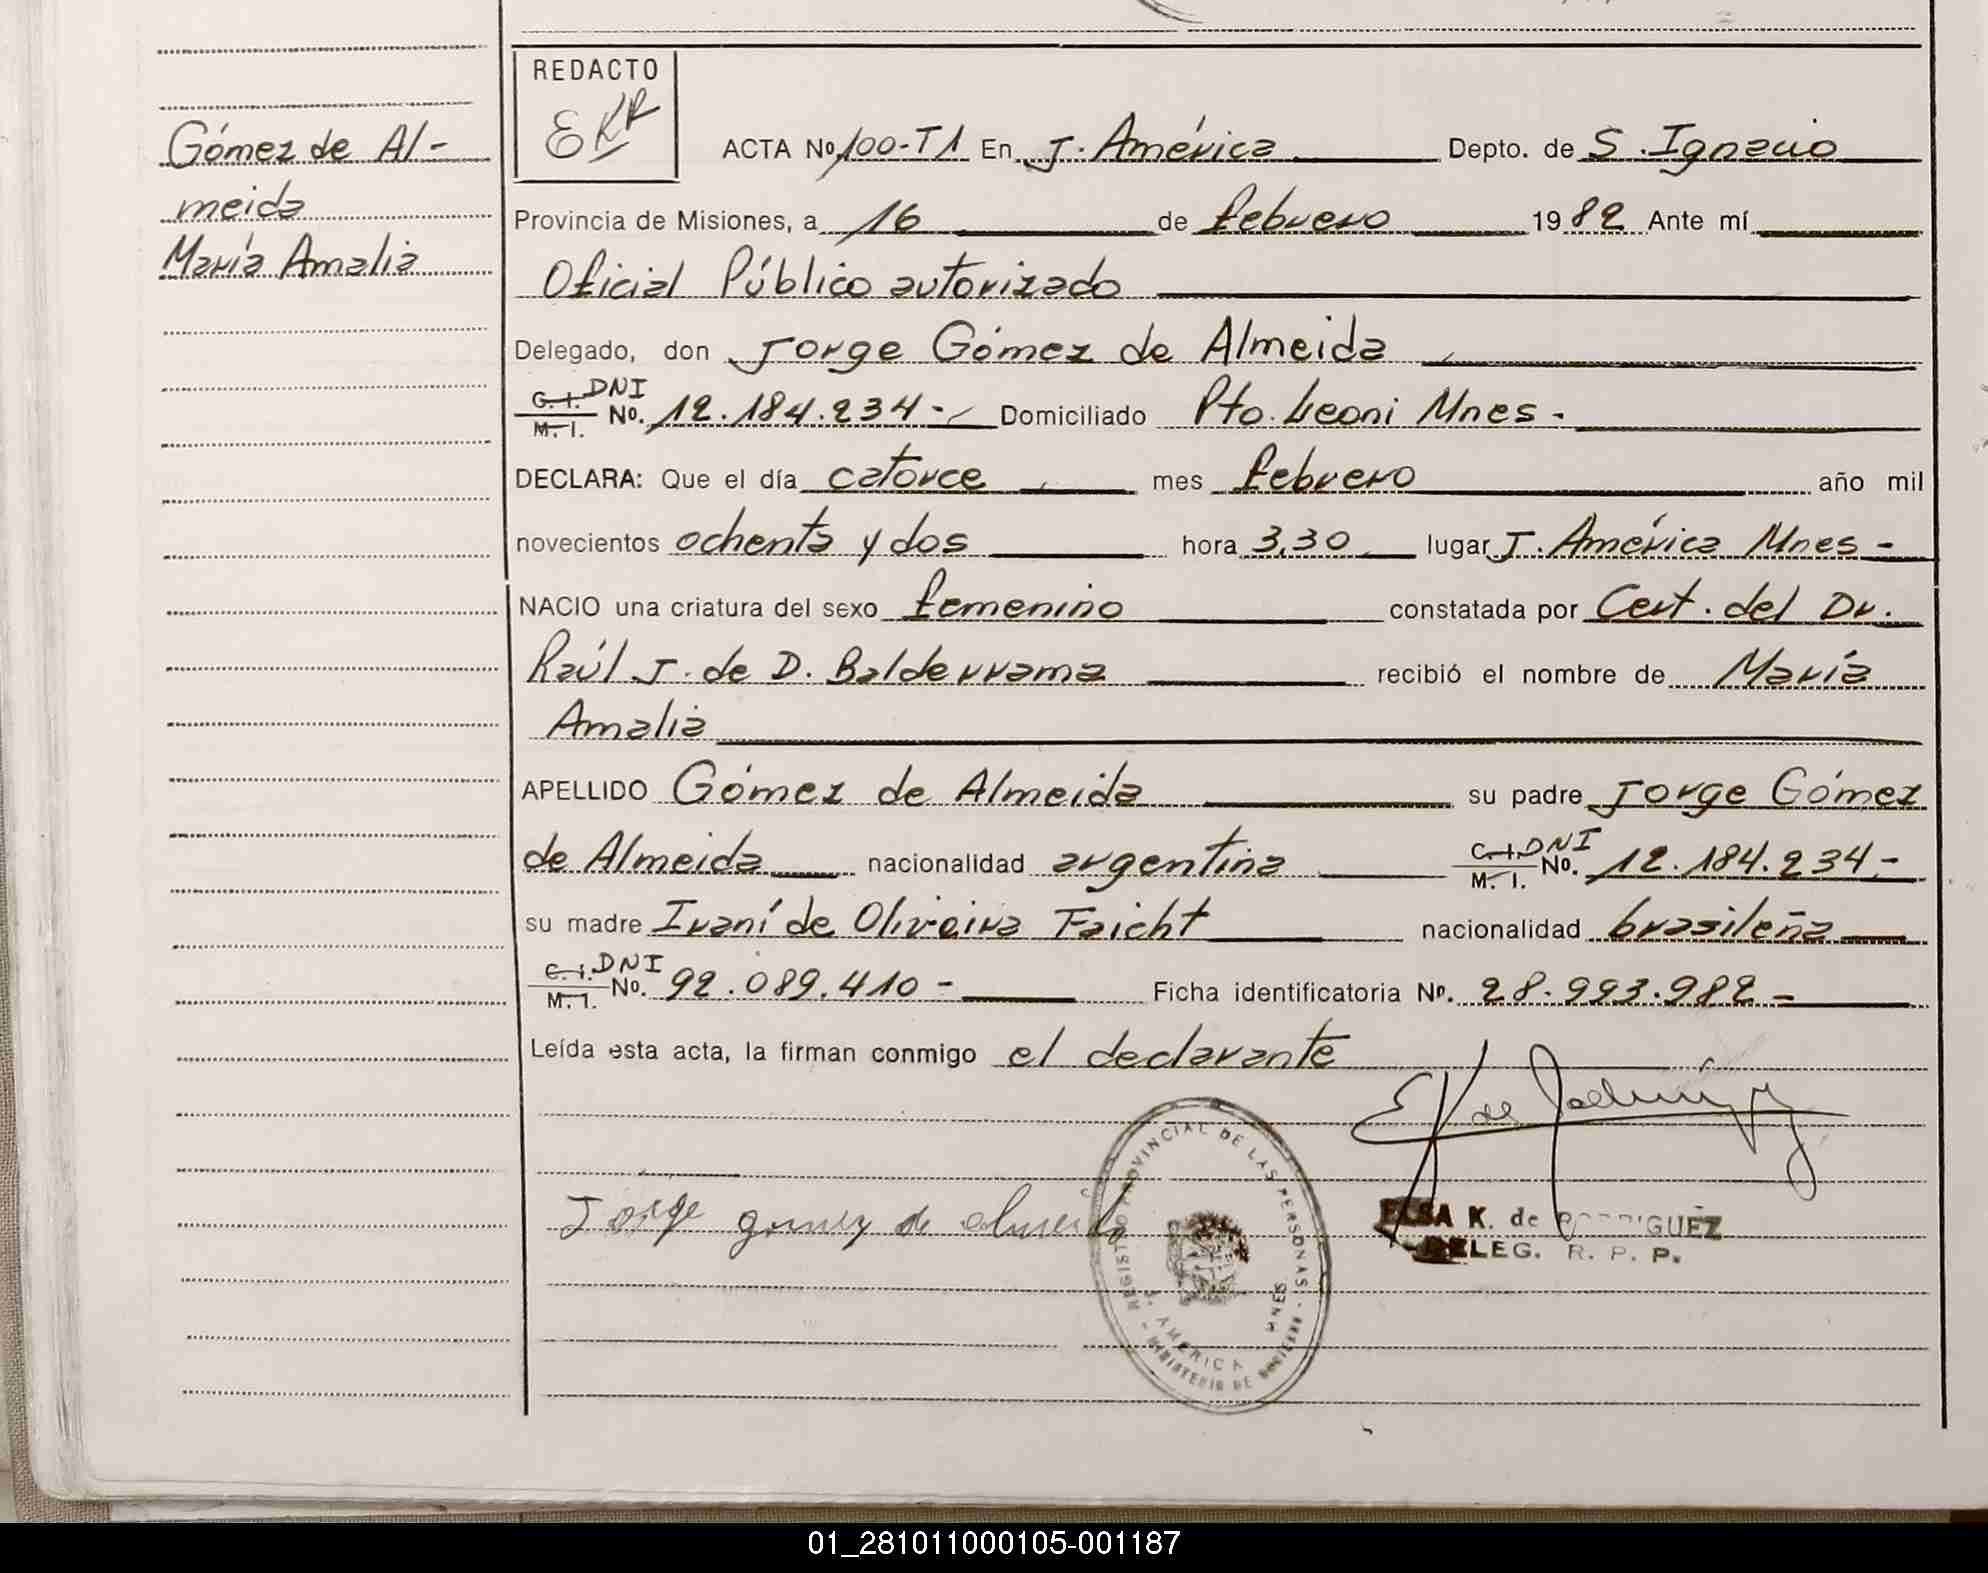 REDACTO
EKR
Gómez de Al-
meida
María Amalia
ACTA No 100-T1 En J. América Depto. de S. Ignacio
Provincia de Misiones, a 16 de febrero 1982 Ante mí
Oficial Público autorizado
Delegado, don Jorge Gómez de Almeida
C.I. DNI
M.I. No. 12.184.234.- Domiciliado Pto. Leoni Mnes.
DECLARA: Que el día catorce mes febrero año mil
novecientos ochenta y dos hora 3,30 lugar J. América Mnes -
NACIO una criatura del sexo femenino constatada por Cert. del Dr.
Raúl J. de D. Balderrama recibió el nombre de María
Amalia
APELLIDO Gómez de Almeida su padre Jorge Gómez
de Almeida nacionalidad argentina C.I. DNI M.I. No. 12.184.234.-
su madre Ivaní de Oliveira Faicht nacionalidad brasileña
C.I. DNI
M.I. No. 92.089.410 - Ficha identificatoria No. 28.993.982 -
Leída esta acta, la firman conmigo el declarante
EK de Rodríguez
Jorge gomez de almeida
REGISTRO PROVINCIAL DE LAS PERSONAS
J. AMERICA MNES
MINISTERIO DE GOBIERNO
ELSA K. de RODRIGUEZ
DELEG. R. P. P.
01_281011000105-001187